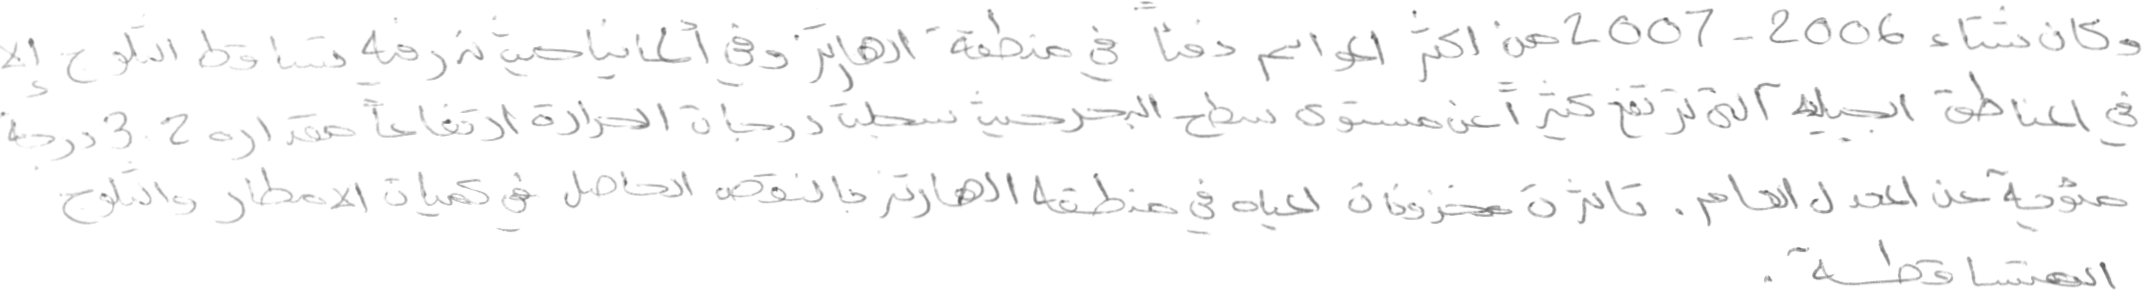 وكان شتاء 2006-2007 من اكثر المواسم دفئاً في منطقة الهارتز وفي ألمانيا حيث ندر فيه تساقط الثلوج إلا
في المناطق الجبلية التي ترتفع كثيراً عن مستوى سطح البحر حيث سجلت درجات الحرارة ارتفاعاً مقداره 3.2 درجة
مئوية عن المعدل العام. تاثرت مخزونات المياه في منطقة الهارتز بالنقص الحاصل في كميات الامطار والثلوج
المتساقطة.